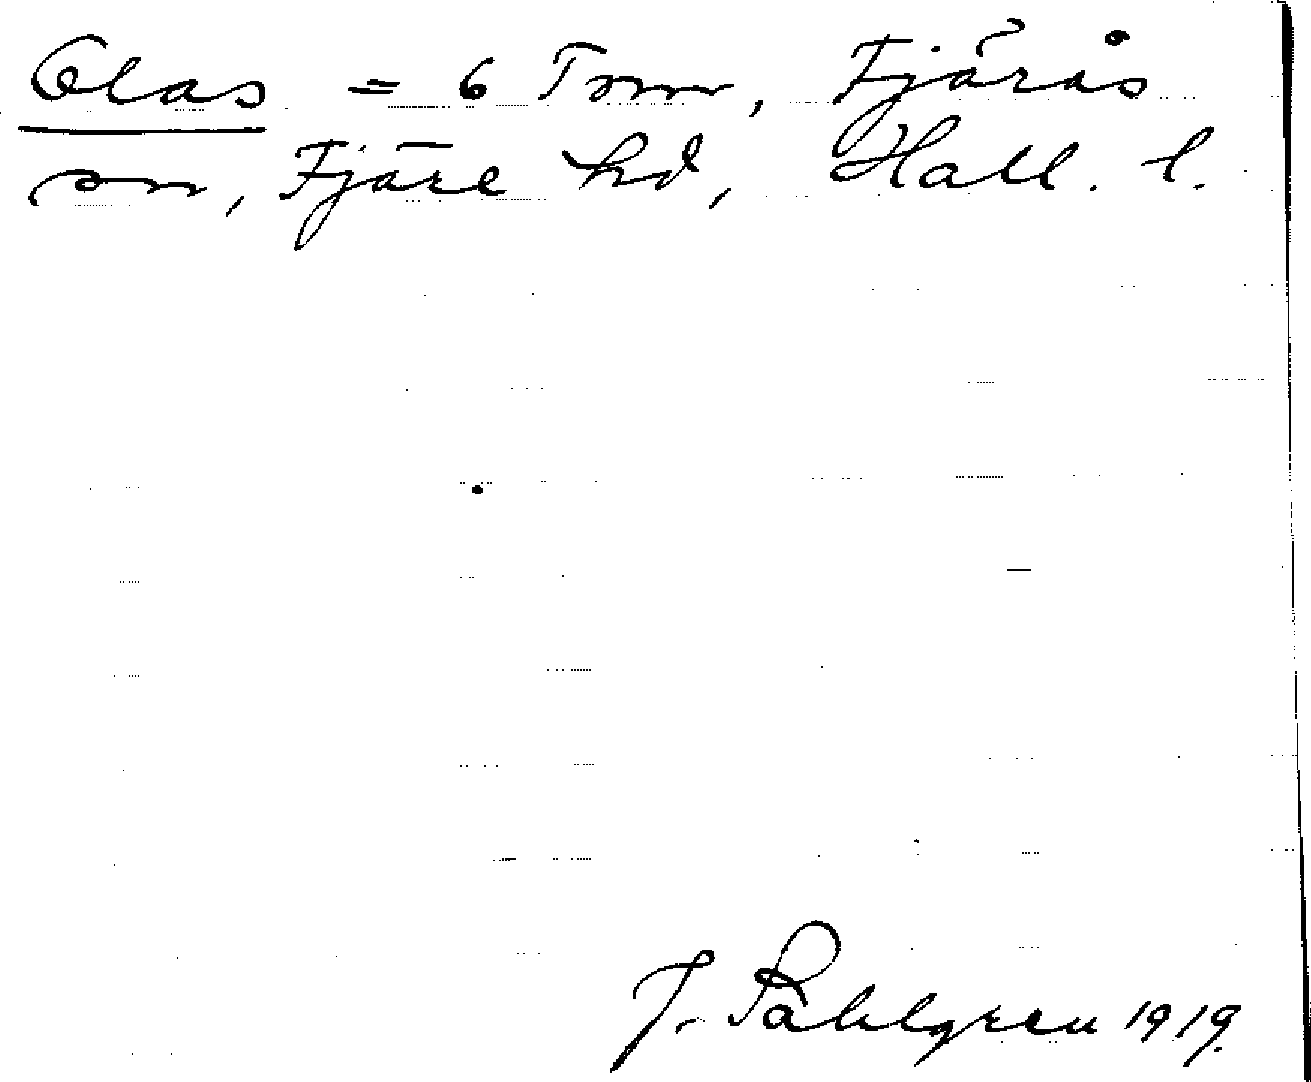 Olas = 6 Torm, Fjärås
sn, Fjäre hd, Hall. l.
J. Sahlgren 1919.